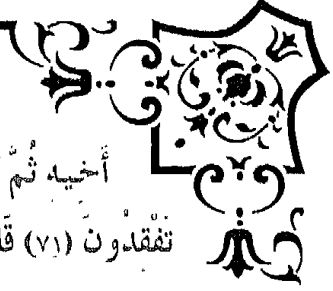 أَخيه ثُمّ
تَفْقدُونَ (٧١) قَا